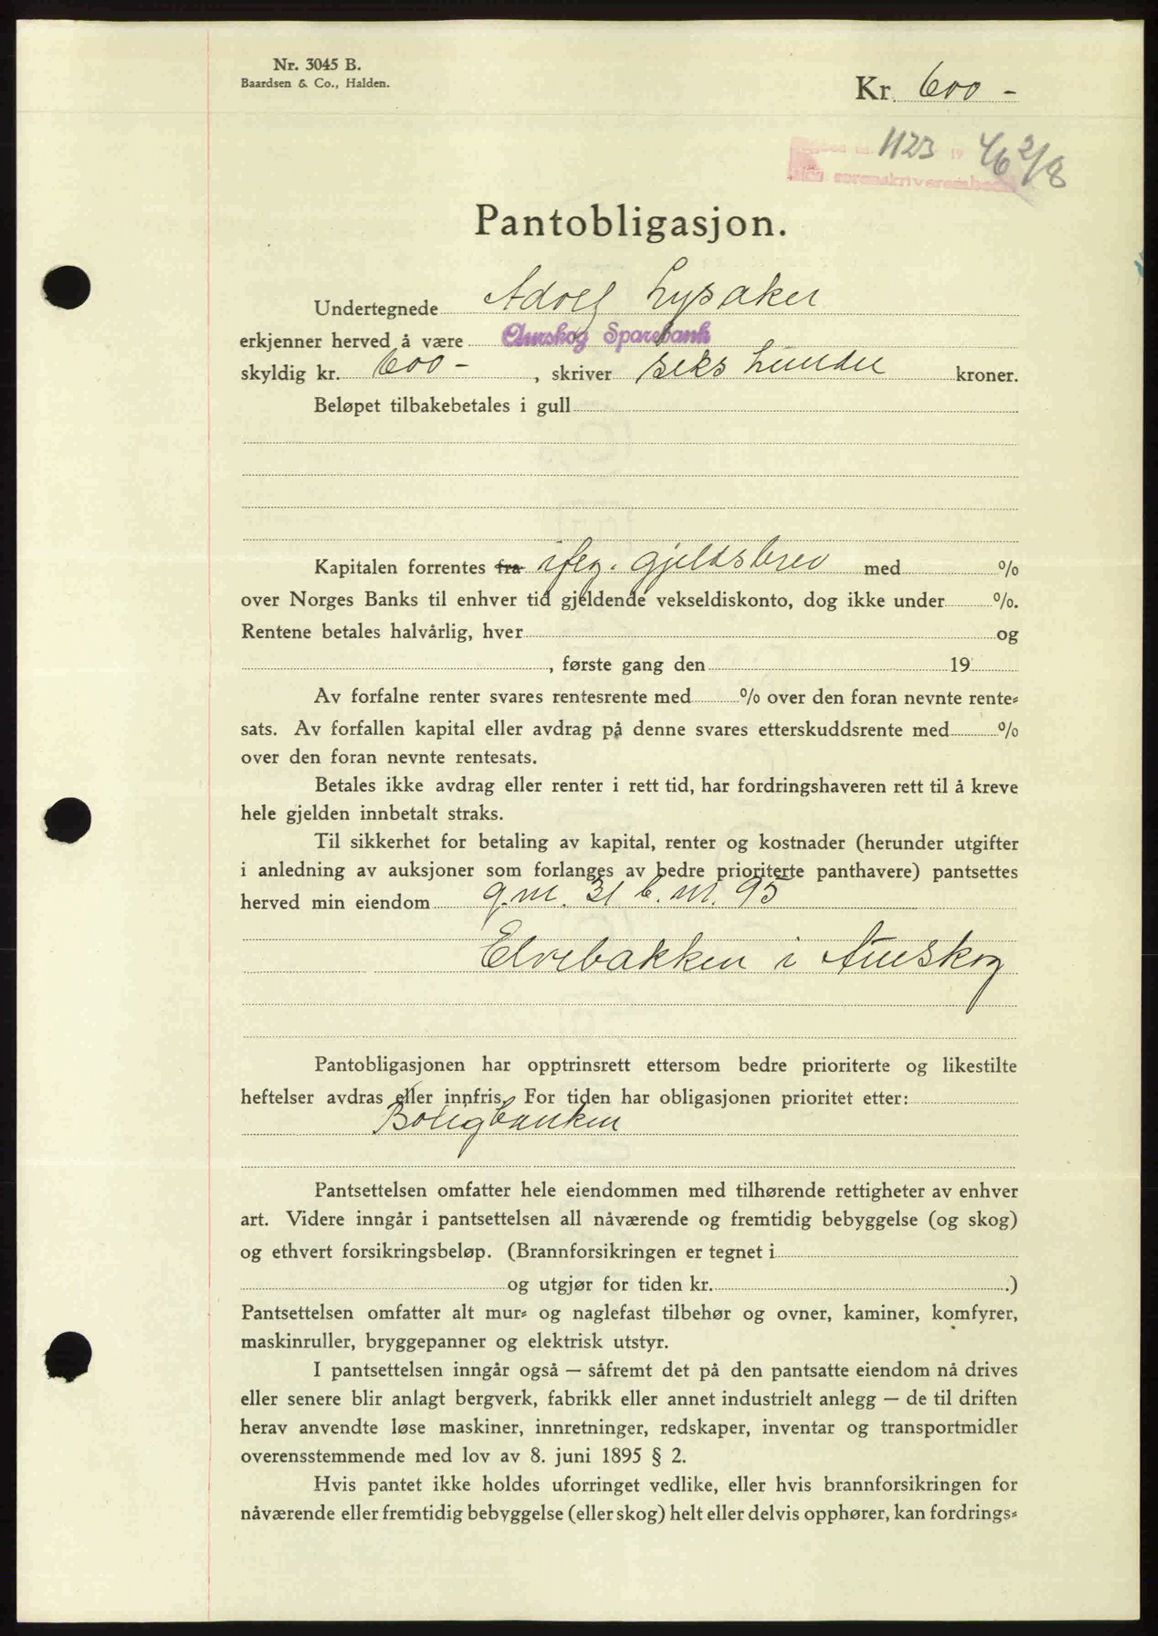 Nr. 3045 B.
Baardsen & Co., Halden.
Kr. 600 -
1123 19 46 2/8
sorenskriverembede
Pantobligasjon.
Undertegnede Adolf Lysaker
erkjenner herved å være Aurskog Sparebank
skyldig kr. 600 - , skriver seks hundre kroner.
Beløpet tilbakebetales i gull
Kapitalen forrentes fra iflg. gjeldsbrev med %
over Norges Banks til enhver tid gjeldende vekseldiskonto, dog ikke under %.
Rentene betales halvårlig, hver og
, første gang den 19
Av forfalne renter svares rentesrente med % over den foran nevnte rente=
sats. Av forfallen kapital eller avdrag på denne svares etterskuddsrente med %
over den foran nevnte rentesats.
Betales ikke avdrag eller renter i rett tid, har fordringshaveren rett til å kreve
hele gjelden innbetalt straks.
Til sikkerhet for betaling av kapital, renter og kostnader (herunder utgifter
i anledning av auksjoner som forlanges av bedre prioriterte panthavere) pantsettes
herved min eiendom g.nr. 31 b.nr. 95
Elvebakken i Aurskog
Pantobligasjonen har opptrinsrett ettersom bedre prioriterte og likestilte
heftelser avdras eller innfris. For tiden har obligasjonen prioritet etter:
Boligbanken
Pantsettelsen omfatter hele eiendommen med tilhørende rettigheter av enhver
art. Videre inngår i pantsettelsen all nåværende og fremtidig bebyggelse (og skog)
og ethvert forsikringsbeløp. (Brannforsikringen er tegnet i
og utgjør for tiden kr. .)
Pantsettelsen omfatter alt mur= og naglefast tilbehør og ovner, kaminer, komfyrer,
maskinruller, bryggepanner og elektrisk utstyr.
I pantsettelsen inngår også — såfremt det på den pantsatte eiendom nå drives
eller senere blir anlagt bergverk, fabrikk eller annet industrielt anlegg — de til driften
herav anvendte løse maskiner, innretninger, redskaper, inventar og transportmidler
overensstemmende med lov av 8. juni 1895 § 2.
Hvis pantet ikke holdes uforringet vedlike, eller hvis brannforsikringen for
nåværende eller fremtidig bebyggelse (eller skog) helt eller delvis opphører, kan fordrings=